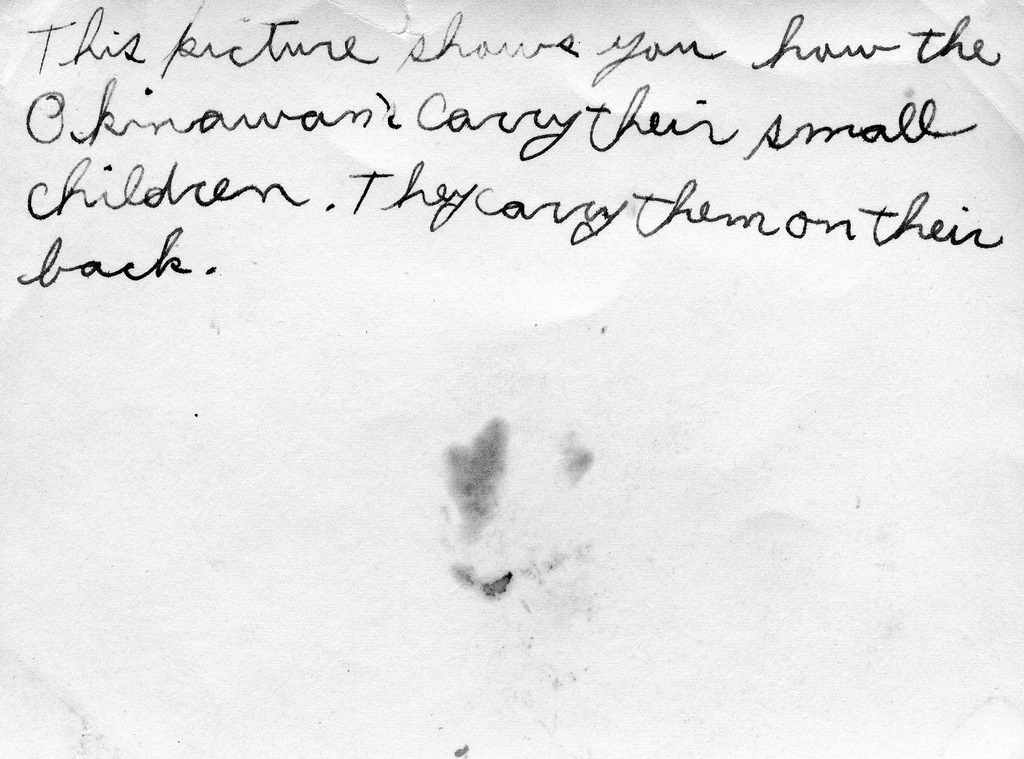 This picture shows you how the
Okinawan's carry their small
children. They carry them on their
back.